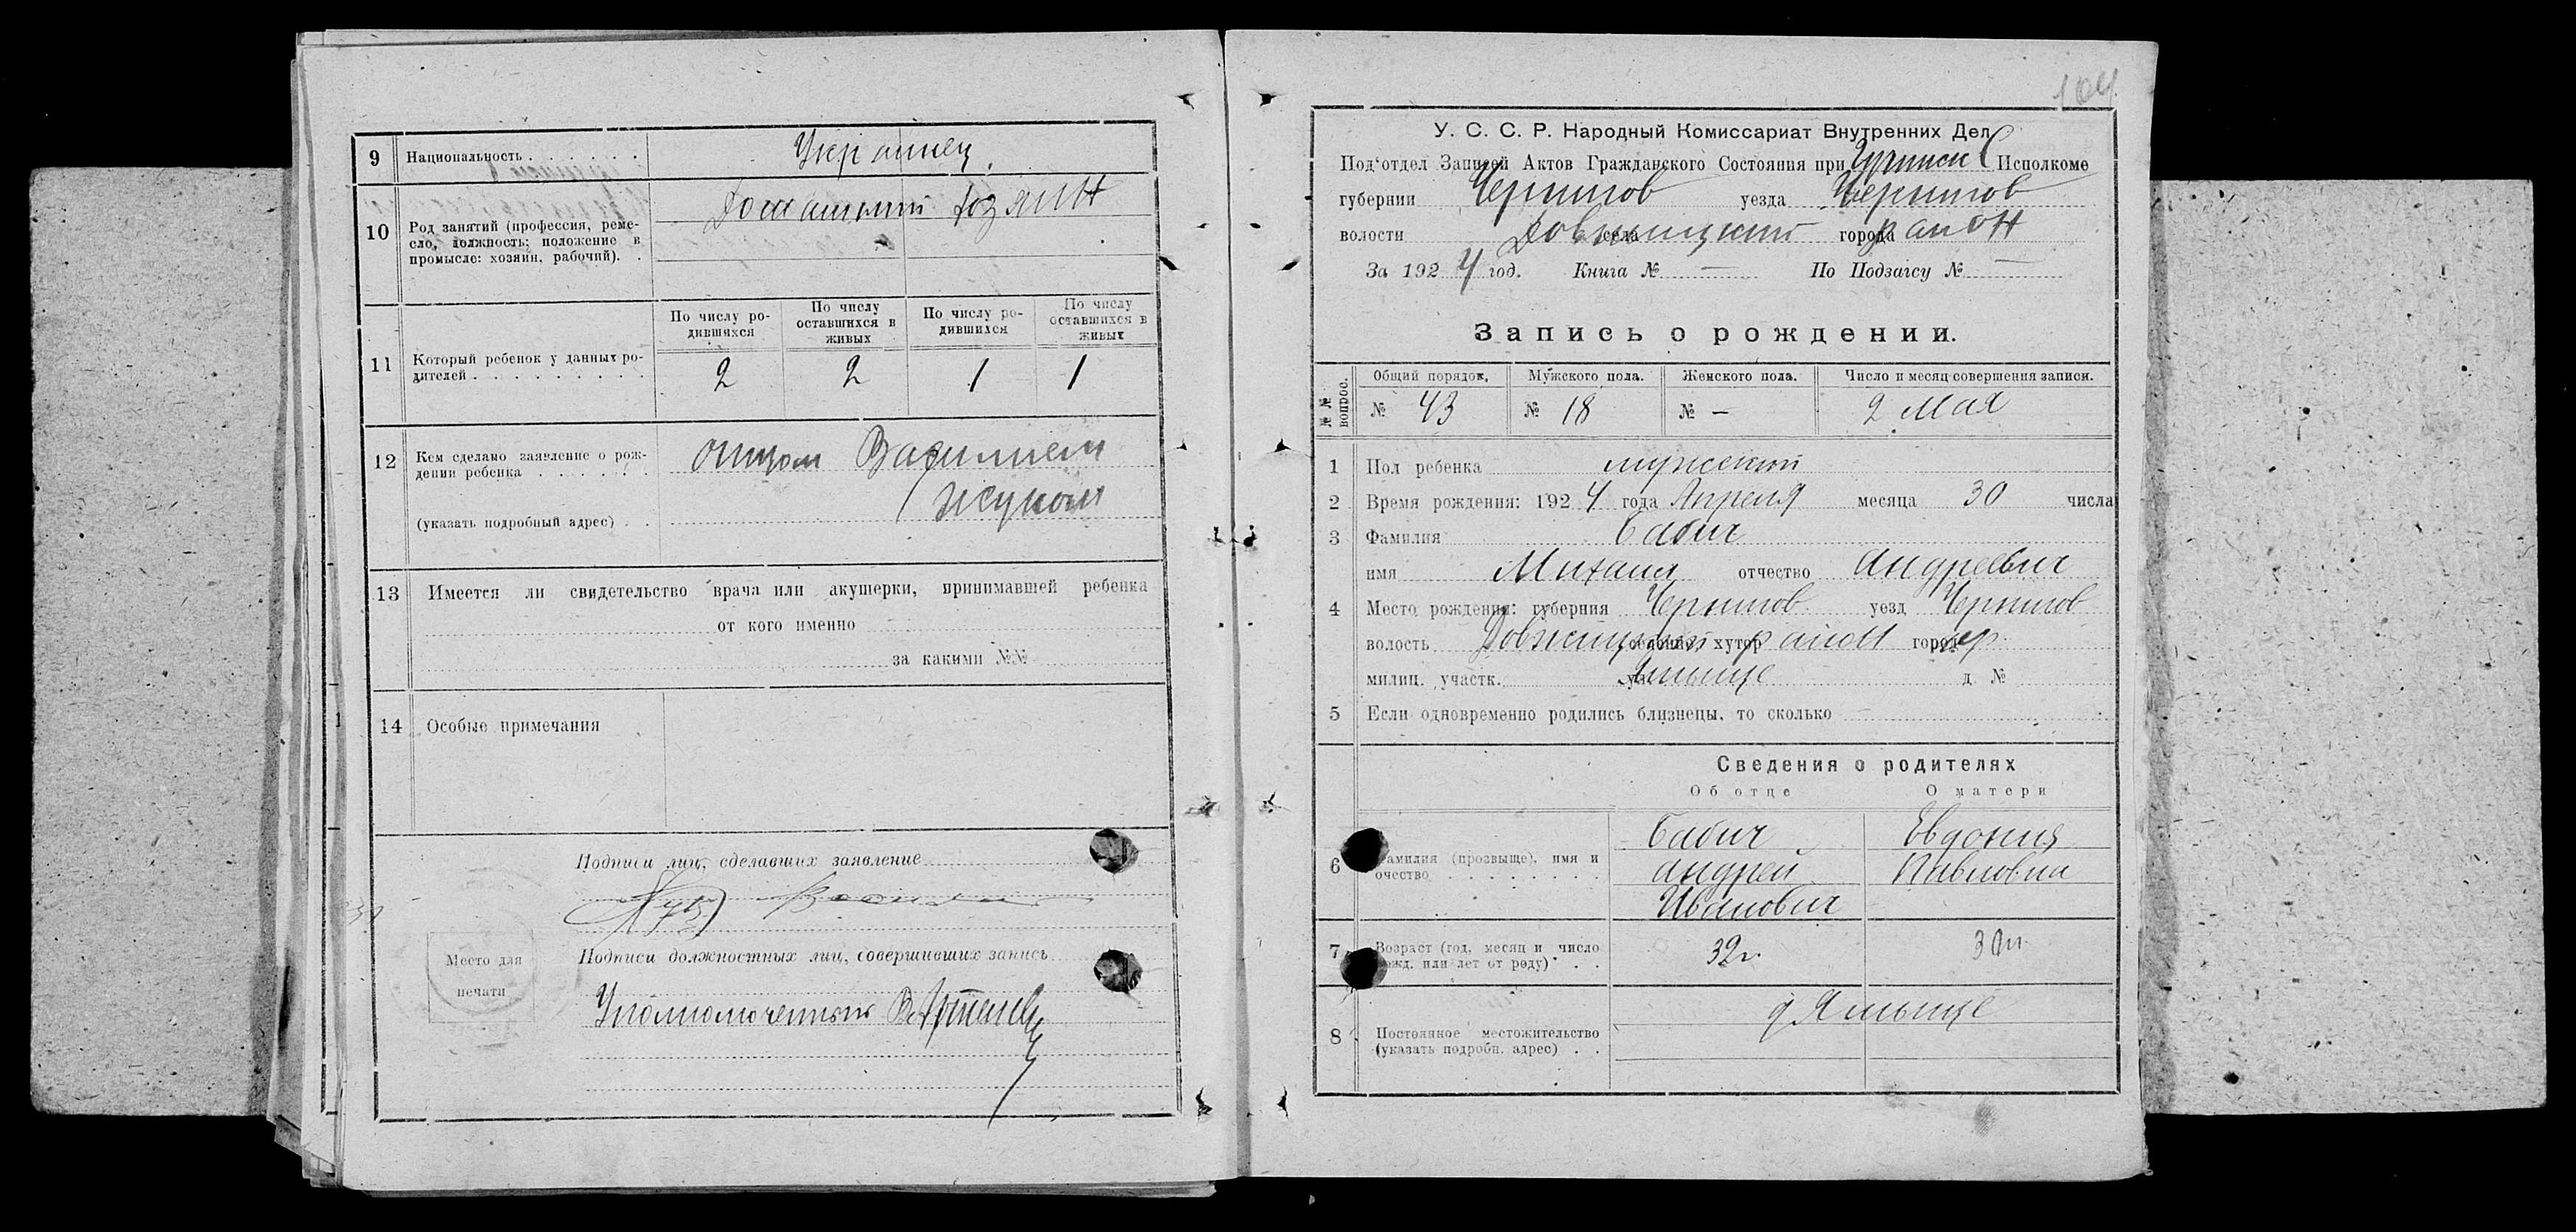 9 Национальность . . . . . . Украинец.
10 Род занятий (профессия, реме-
сло, должность; положение в
промысле: хозяин, рабочий). .
Домашний хозяин
11 Который ребенок у данных ро-
дителей . . . . . . . . .
По числу ро-
дившихся
По числу
оставшихся в
живых
По числу ро-
дившихся
По числу
оставшихся в
живых
2 2 1 1
12 Кем сделано заявление о рож-
дении ребенка . . . . . . .
(указать подробный адрес) . .
отцом Василием
Жуком
13 Имеется ли свидетельство врача или акушерки, принимавшей ребенка
от кого именно
за какими №№
14 Особые примечания
Подписи лиц, сделавших заявление
Место для
печати
Подписи должностных лиц, совершивших запись
Уполномоченный
104
У. С. С. Р. Народный Комиссариат Внутренних Дел
Под'отдел Записей Актов Гражданского Состояния при Исполкоме
губернии Чернигов уезда Чернигов
волости села города район
За 1924 год. Книга № — По Подзагсу № —
Запись о рождении.
№ №
вопрос.
Общий порядок, Мужского пола. Женского пола. Число и месяц совершения записи.
№ 43 № 18 № — 2 Мая
1 Пол ребенка мужской
2 Время рождения: 1924 года Апреля месяца 30 числа
3 Фамилия Бабич
имя Михаил отчество Андреевич
4 Место рождения: губерния Чернигов уезд Чернигов
волость селение, хутор район город
милиц. участк. ул. Ямыще д. №
5 Если одновременно родились близнецы, то сколько —
Сведения о родителях
Об отце О матери
6 Фамилия (прозвыще), имя и
очество . . . . . . . . .
Бабич
Андрей
Иванович
Евдокия
Павловна
7 Возраст (год, месяц и число
рожд. или лет от роду) . . .
32г.
8 Постоянное местожительство
(указать подробн. адрес) . .
д Ямыще